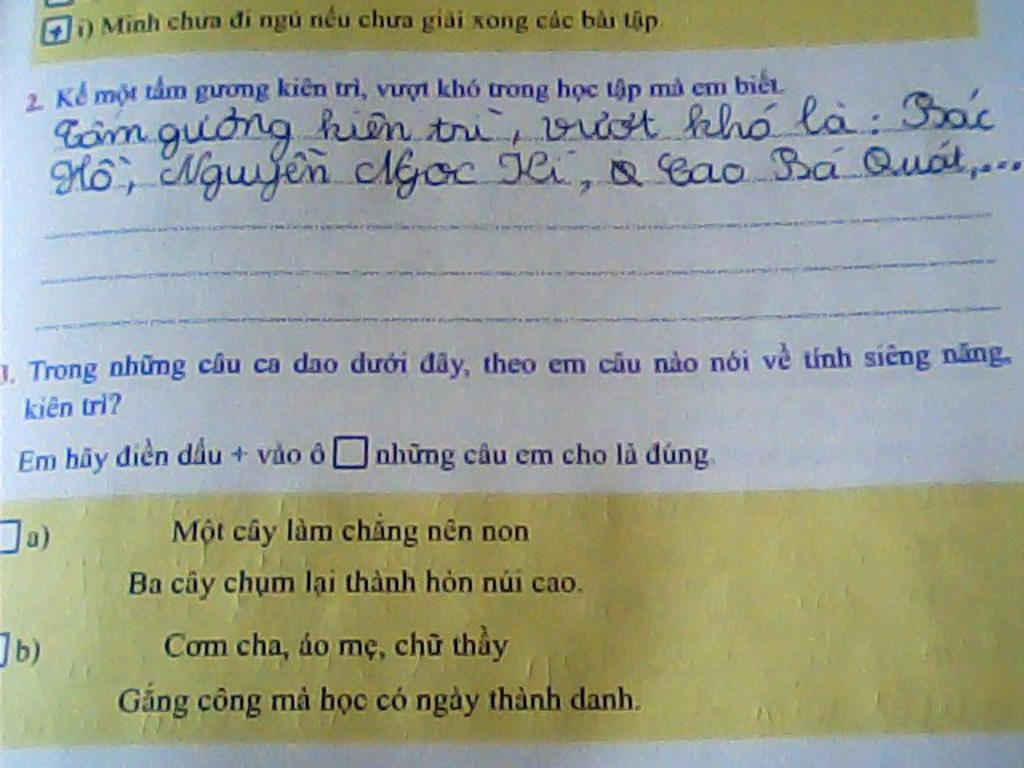 + i) Mình chưa đi ngủ nếu chưa giải xong các bài tập
2. Kể một tấm gương kiên trì, vượt khó trong học tập mà em biết.
Tấm gương kiên trì, vượt khó là: Bác
Hồ, Nguyễn Ngọc Kí, Cao Bá Quát,...
3. Trong những câu ca dao dưới đây, theo em câu nào nói về tính siêng năng,
kiên trì?
Em hãy điền dấu + vào ô □ những câu em cho là đúng.
a) Một cây làm chẳng nên non
Ba cây chụm lại thành hòn núi cao.
b) Cơm cha, áo mẹ, chữ thầy
Gắng công mà học có ngày thành danh.